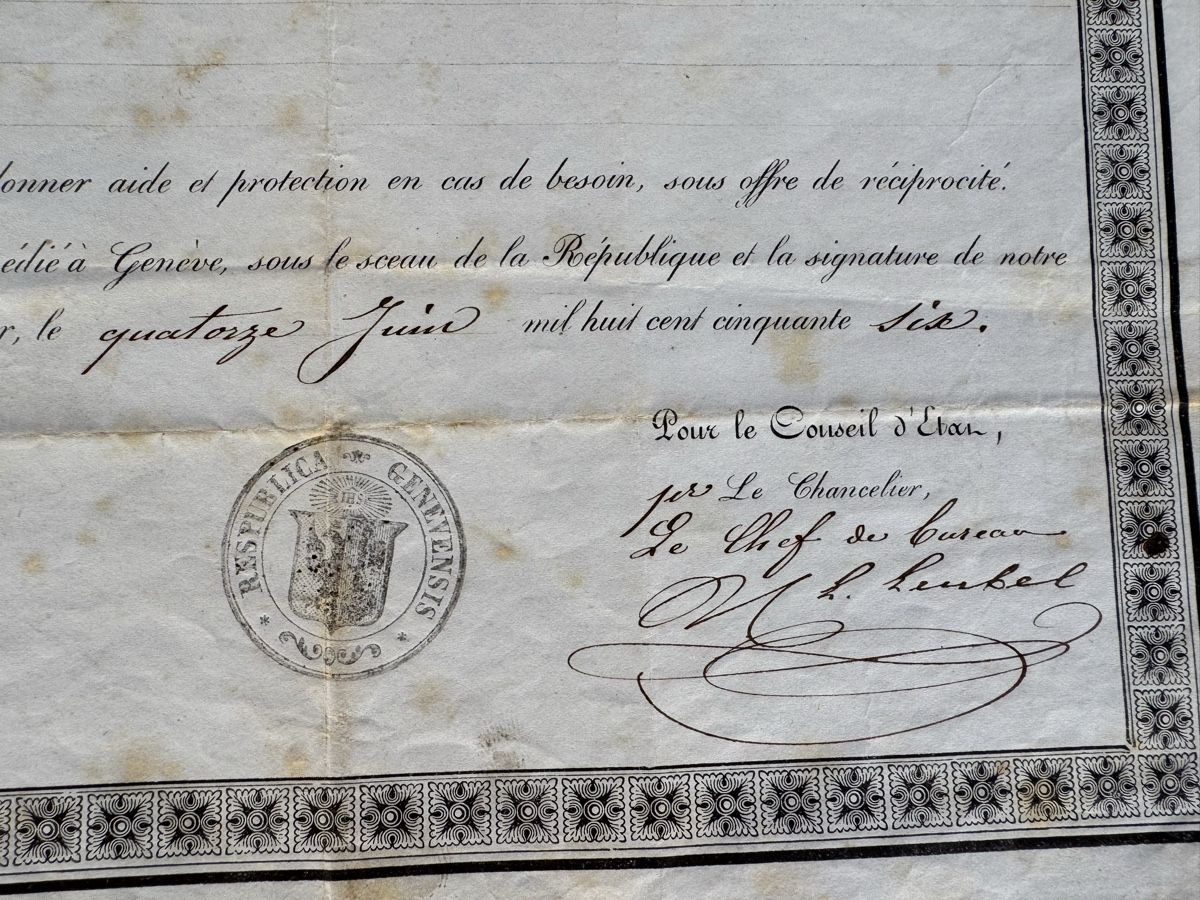 donner aide et protection en cas de besoin, sous offre de réciprocité.
édié à Genève, sous le sceau de la République et la signature de notre
r, le quatorze Juin mil huit cent cinquante six.
Pour le Conseil d'Etat,
pr Le Chancelier,
Le Chef de bureau
RESPUBLICA GENEVENSIS
IHS